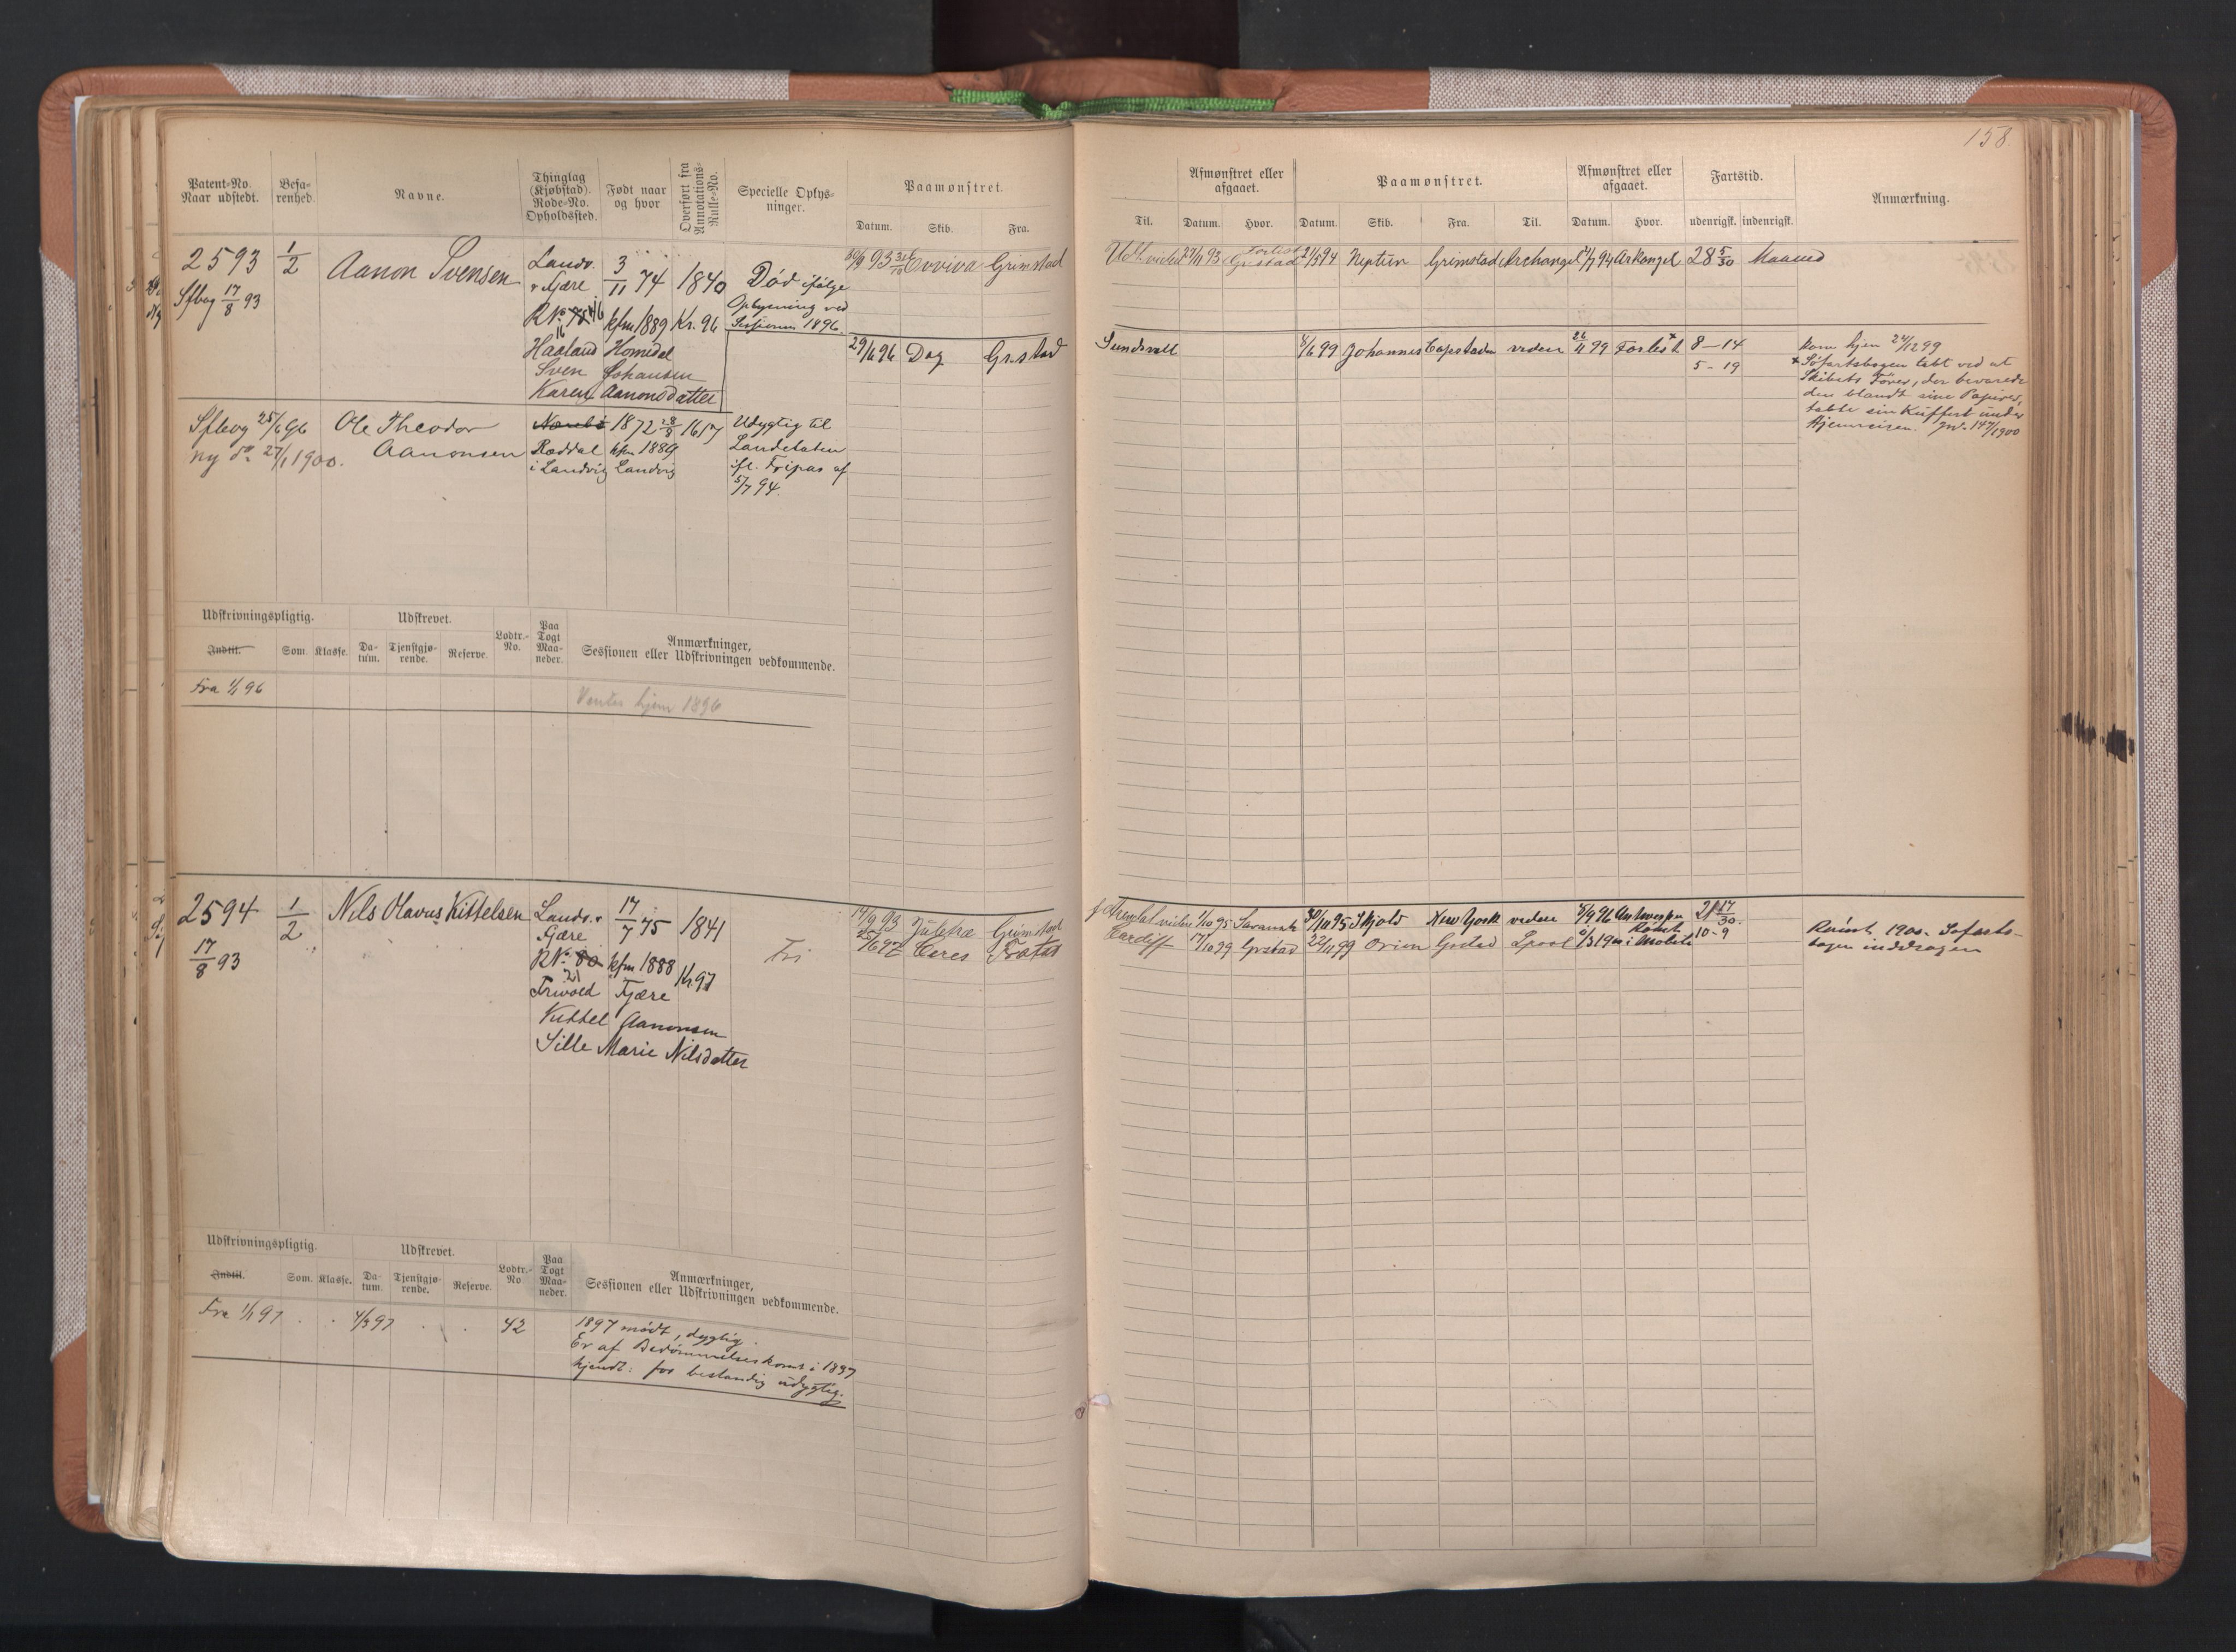 158.
Patent-No. Naar udstedt.
Befa-renhed.
Navne.
Thinglag (Kjøbstad). Rode-No. Opholdssted.
Født naar og hvor
Overført fra Annotations-Rulle-No.
Specielle Oplys-ninger.
Paamønstret.
Datum. Skib. Fra.
Til.
Afmønstret eller afgaaet.
Datum. Hvor.
Paamønstret.
Datum. Skib. Fra. Til.
Afmønstret eller afgaaet.
Datum. Hvor.
Fartstid.
udenrigsk. indenrigsk.
Anmærkning.
2593 1/2 Aanon Svensen Landv. 3/11 74 1840 Død ifølge
Sfbog 17/8 93 v Fjære
Oplysning ved
RNo 16 kfm 1889 Kr. 96 Sessionen 1896.
Haaland Homedal
Sven Johansen
Karen Aanonsdatter
Grimstad
94 Neptun Grimstad Archangel 94 Arkangel 28 5/30 Maaned
29/6 96 Dag Gr.stad
Sundsvall
6/6 99 Johannes Capstaden viden 99 Forlist 8-14
5-19
Kom hjem 24/12 99
× Søfartsbogen tabt ved at
Skibets Fører, der bevarede
den blandt sine Papirer,
tabte sin Kuffert under
Hjemreisen. Jnr. 147/1900
Sfbog 25/6 96 Ole Theodor 1872 28/8 1617 Udygtig til
ny do 27/1 1900. Aanonsen Roddal kfm 1889 Landetaten
i Landvig Landvig ifl. Fripas af
5/7 94.
Udskrivningspligtig.
Indtil. Som. Klasse.
Udskrevet.
Da-tum. Tjenstgjø-rende. Reserve.
Lodtr.-No.
Paa Togt Maa-neder.
Anmærkninger,
Sessionen eller Udskrivningen vedkommende.
Fra 1/1 96
Ventes hjem 1896
2594 1/2 Nils Olavus Kittelsen Landv. v 17/7 75 1841
17/8 93 Fjære
Fri
RNo 80 kfm 1888 Kr. 97
21
Trivold Fjære
Kittel Aanonsen
Sille Marie Nilsdatter
14/9 93 Grimstad
Ceres
1/10 95 Savannah 30/10 95 Skjold New York viden 5/9 96 Antwerpen 21 17/30.
Cardiff 17/10 99 Grstad 22/11 99 Orion Grstad Lpool Rømt i Mobile 10-9
Rømt 1900. Søfarts-
bogen inddragen
Udskrivningspligtig.
Indtil. Som. Klasse.
Udskrevet.
Da-tum. Tjenstgjø-rende. Reserve.
Lodtr.-No
Paa Togt Maa-neder.
Anmærkninger,
Sessionen eller Udskrivningen vedkommende.
Fra 1/1 97 4/3 97 42 1897 mødt, dygtig.
Er af Bedømmelseskom: i 1897
kjendt: for bestandig udygtig.